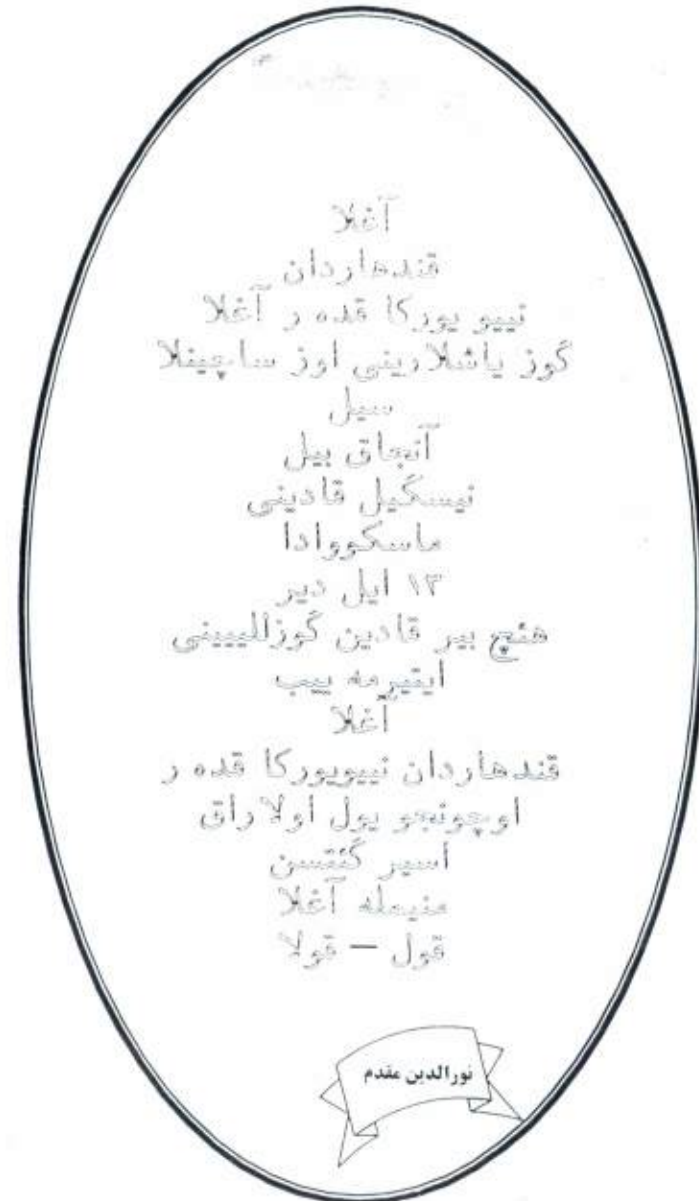 آغلا
قندهاردان
نییو یورکا قده ر آغلا
گوز یاشلارینی اوز ساچینلا
سیل
آنجاق بیل
نیسگیل قادینی
ماسکووادا
۱۳ ایل دیر
هئچ بیر قادین گوزللییینی
ایتیرمه ییب
آغلا
قندهاردان نییویورکا قده ر
اوچونجو یول اولا راق
اسیر گئتسن
منیمله آغلا
قول – قولا
نورالدین مقدم